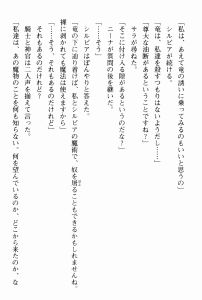 「私は、あえて竜の誘いに乗ってみるのもいいと思うの」
シルビアが続ける。
「竜は、私達を殺すつもりはないようだし……」
「尊大な油断があるということですね?」
サラが尋ねた。
「そこに付け入る隙があるというのだな?」
ニーナが質問の後を継いだ。
「……そう」
シルビアはぼんやりと答えた。
「竜の下に辿り着けば、私とシルビアの魔術で、奴を屠ることもできるかもしれませんね。
裸に剥かれても魔法は使えますから」
「……そう、それもあるのだけれど」
「それもあるのだけれど?」
騎士と神官は二人声を揃えて言った。
「私達は、あの魔物のことを何も知らない。何を望んでいるのか、どこから来たのか、な